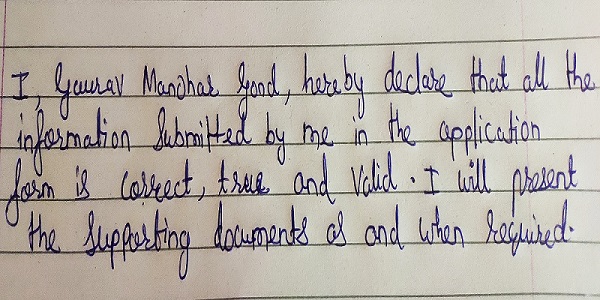 I, Gaurav Manohar Gond, hereby declare that all the
information Submitted by me in the application
form is correct, true and Valid. I will present
the supporting documents as and when required.